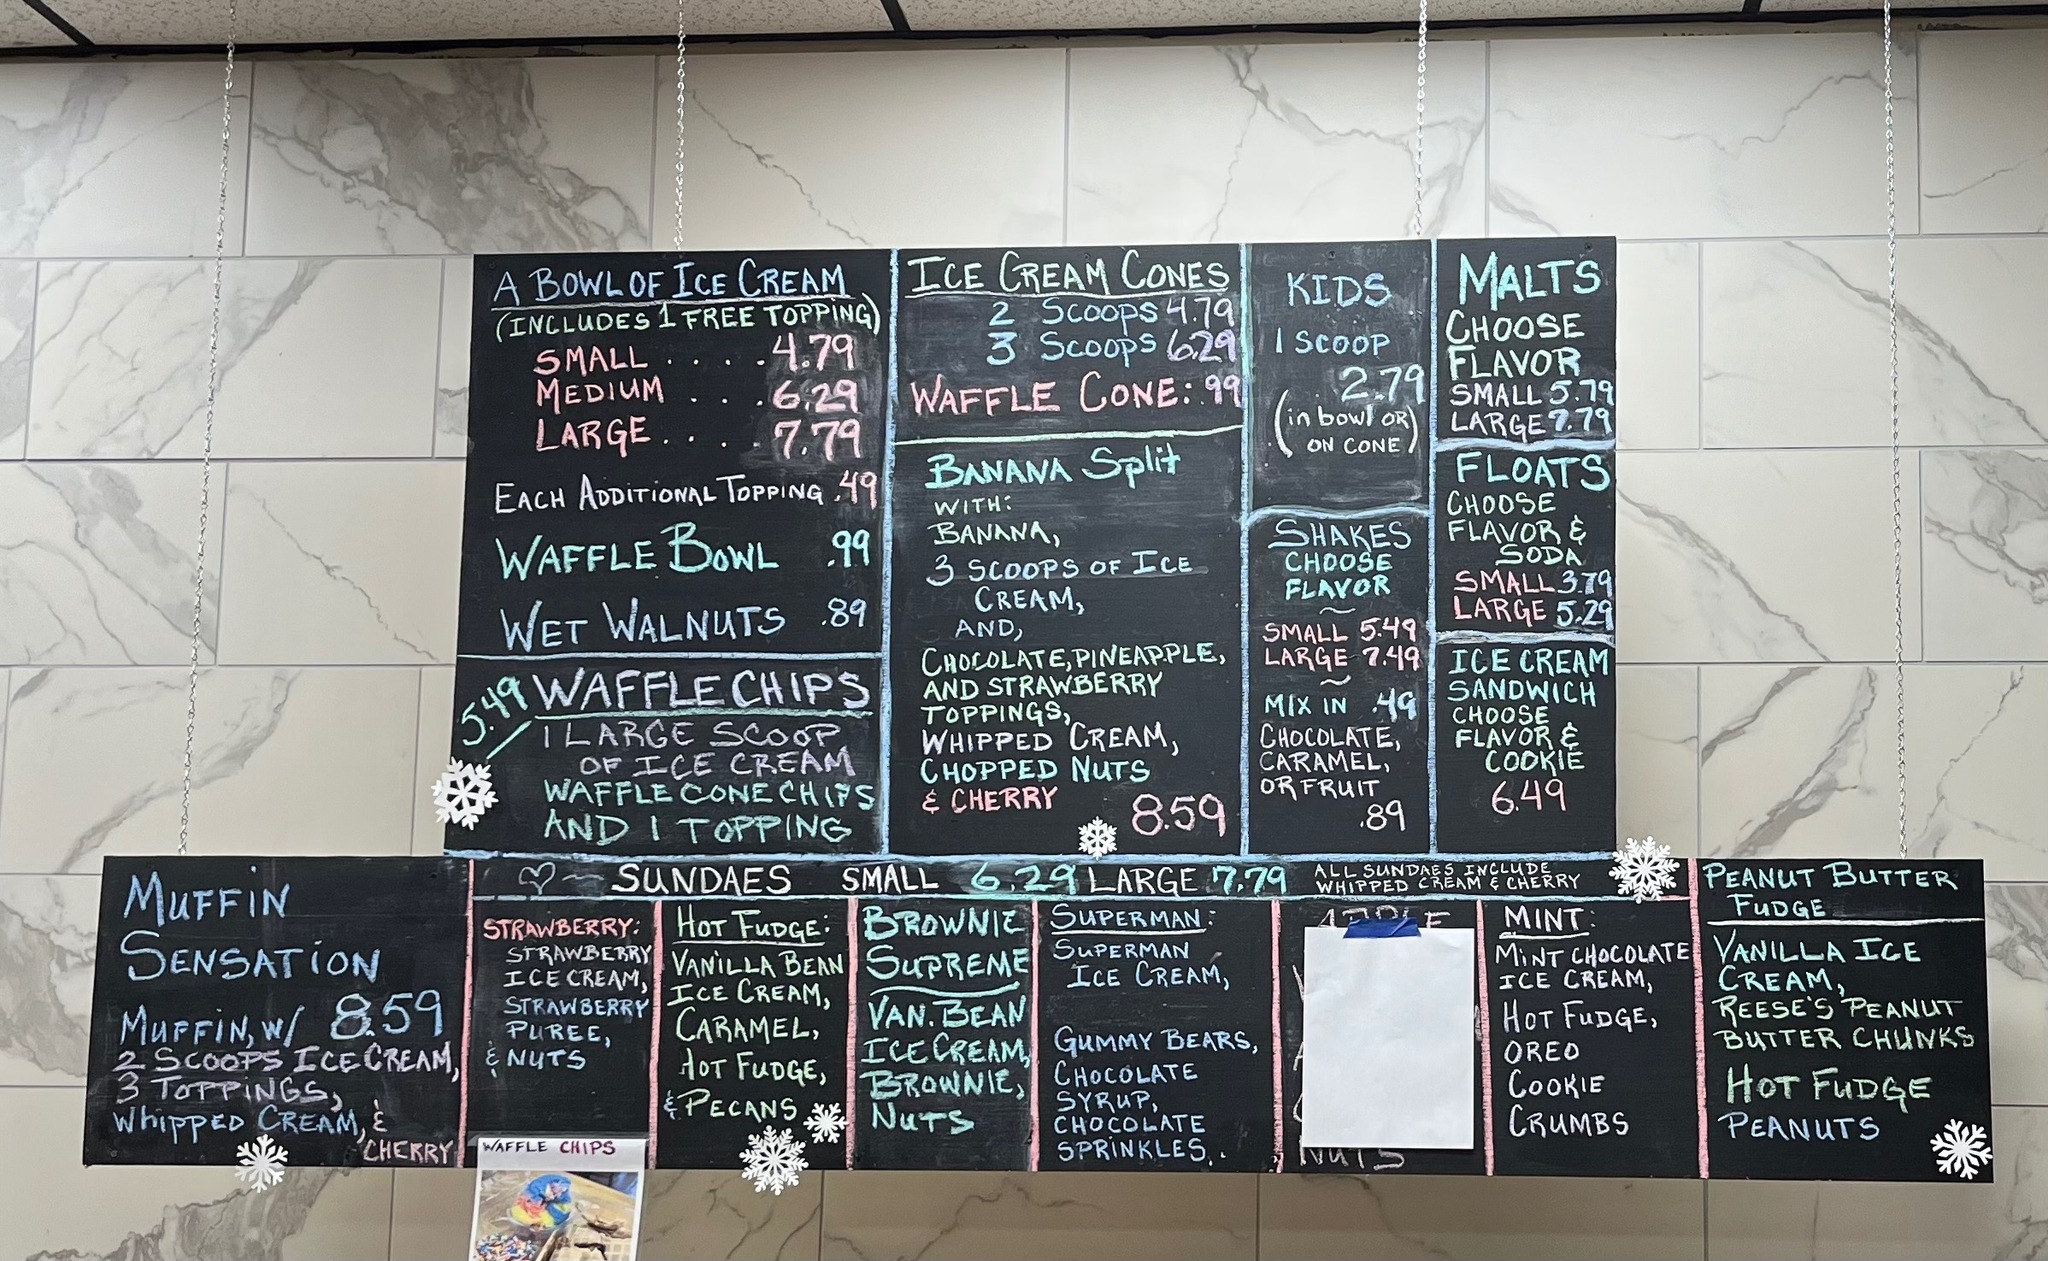 A BOWL OF ICE CREAM
(INCLUDES 1 FREE TOPPING)
SMALL . . . . 4.79
MEDIUM . . . 6.29
LARGE . . . . 7.79
EACH ADDITIONAL TOPPING .49
WAFFLE BOWL .99
WET WALNUTS .89
5.49 WAFFLE CHIPS
1 LARGE SCOOP
OF ICE CREAM
WAFFLE CONE CHIPS
AND 1 TOPPING
ICE CREAM CONES
2 SCOOPS 4.79
3 SCOOPS 6.29
WAFFLE CONE: .99
BANANA Split
WITH:
BANANA,
3 SCOOPS OF ICE
CREAM,
AND,
CHOCOLATE, PINEAPPLE,
AND STRAWBERRY
TOPPINGS,
WHIPPED CREAM,
CHOPPED NUTS
& CHERRY
8.59
KIDS
1 SCOOP
2.79
(in bowl OR
ON CONE)
SHAKES
CHOOSE
FLAVOR
~
SMALL 5.49
LARGE 7.49
~
MIX IN .49
CHOCOLATE,
CARAMEL,
OR FRUIT
.89
MALTS
CHOOSE
FLAVOR
SMALL 5.79
LARGE 7.79
FLOATS
CHOOSE
FLAVOR &
SODA
SMALL 3.79
LARGE 5.29
ICE CREAM
SANDWICH
CHOOSE
FLAVOR &
COOKIE
6.49
MUFFIN
SENSATION
MUFFIN, W/ 8.59
2 SCOOPS ICE CREAM,
3 TOPPINGS,
WHIPPED CREAM, &
CHERRY
SUNDAES SMALL 6.29 LARGE 7.79
ALL SUNDAES INCLUDE
WHIPPED CREAM & CHERRY
STRAWBERRY:
STRAWBERRY
ICE CREAM,
STRAWBERRY
PUREE,
& NUTS
HOT FUDGE:
VANILLA BEAN
ICE CREAM,
CARAMEL,
HOT FUDGE,
& PECANS
BROWNIE
SUPREME
VAN. BEAN
ICE CREAM,
BROWNIE,
NUTS
SUPERMAN:
SUPERMAN
ICE CREAM,
GUMMY BEARS,
CHOCOLATE
SYRUP,
CHOCOLATE
SPRINKLES,
NUTS
MINT:
MINT CHOCOLATE
ICE CREAM,
HOT FUDGE,
OREO
COOKIE
CRUMBS
PEANUT BUTTER
FUDGE
VANILLA ICE
CREAM,
REESE'S PEANUT
BUTTER CHUNKS
HOT FUDGE
PEANUTS
WAFFLE CHIPS